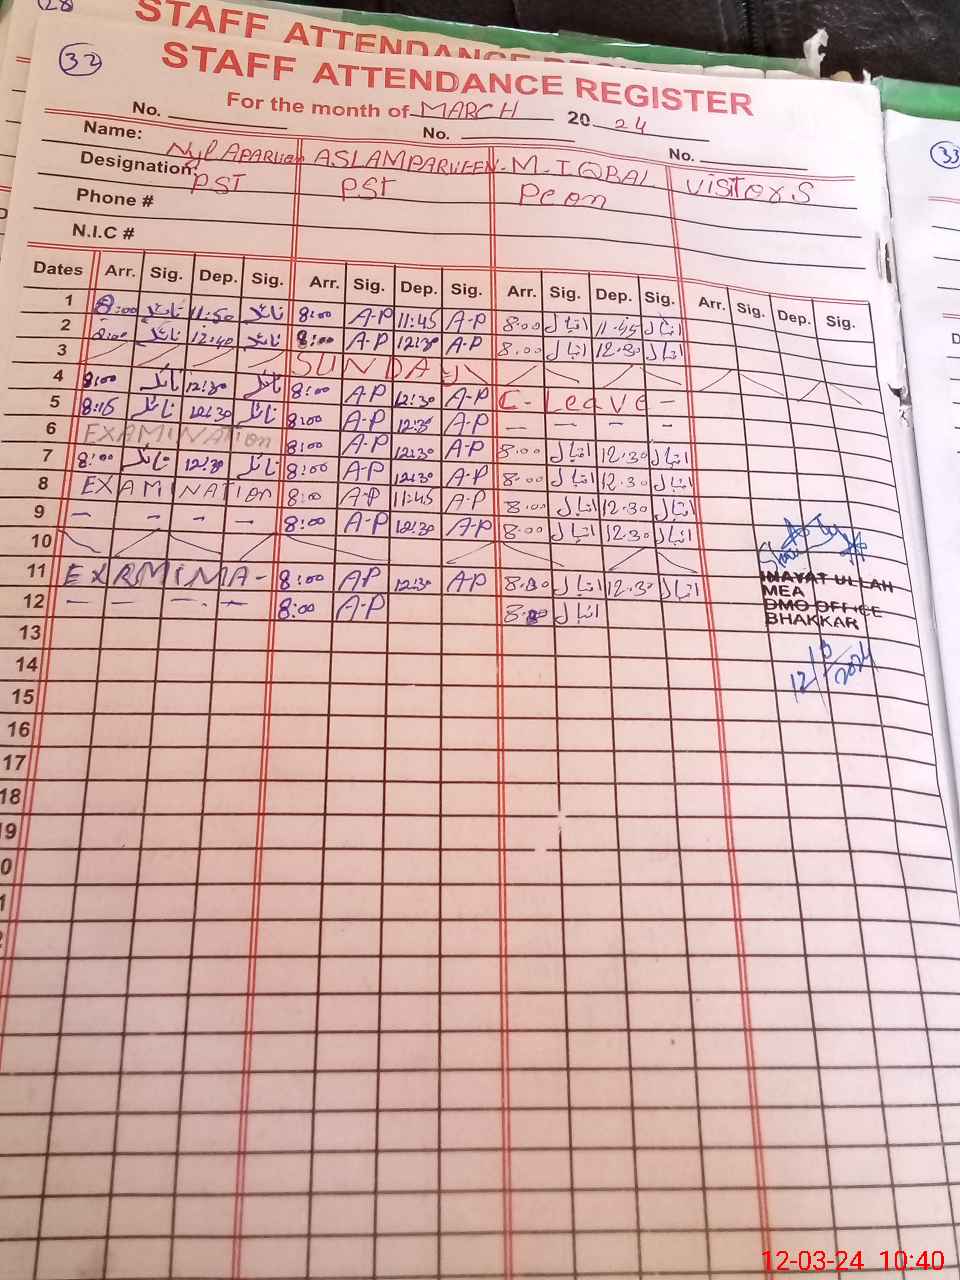 28
STAFF ATTENDANCE REGISTER
32
STAFF ATTENDANCE REGISTER
For the month of MARCH 20 24
No. No. No.
Name: ASLAM PARVEEN. M. IQBAL VISITORS
Designation: PST PST Peon
Phone #
N.I.C #
Dates Arr. Sig. Dep. Sig. Arr. Sig. Dep. Sig. Arr. Sig. Dep. Sig. Arr. Sig. Dep. Sig.
1 8:00 نائلہ 11:50 نائلہ 8:00 A-P 11:45 A-P 8.00 اقبال 11.45 اقبال
2 8:00 نائلہ 12:40 نائلہ 8:00 A-P 12:30 A-P 8.00 اقبال 12.30 اقبال
3 SUNDAY
4 8:00 نائلہ 12:30 نائلہ 8:00 A-P 12:30 A-P C- Leave -
5 8:15 نائلہ 12:30 نائلہ 8:00 A-P 12:30 A-P - - - -
6 EXAMINATION 8:00 A-P 12:30 A-P 8.00 اقبال 12.30 اقبال
7 8:00 نائلہ 12:30 نائلہ 8:00 A-P 12:30 A-P 8.00 اقبال 12.30 اقبال
8 EXAMINATION 8:00 A-P 11:45 A-P 8.00 اقبال 12.30 اقبال
9 - - - - 8:00 A-P 12:30 A-P 8.00 اقبال 12.30 اقبال
10
11 EXRMINA- 8:00 AP 12:30 AP 8.00 اقبال 12.30 اقبال
12 - - - - 8:00 A-P 8.00 اقبال
INAYAT ULLAH
MEA
DMO OFFICE
BHAKKAR
12/3/2024
13
14
15
16
17
18
19
0
1
2
33
12-03-24 10:40